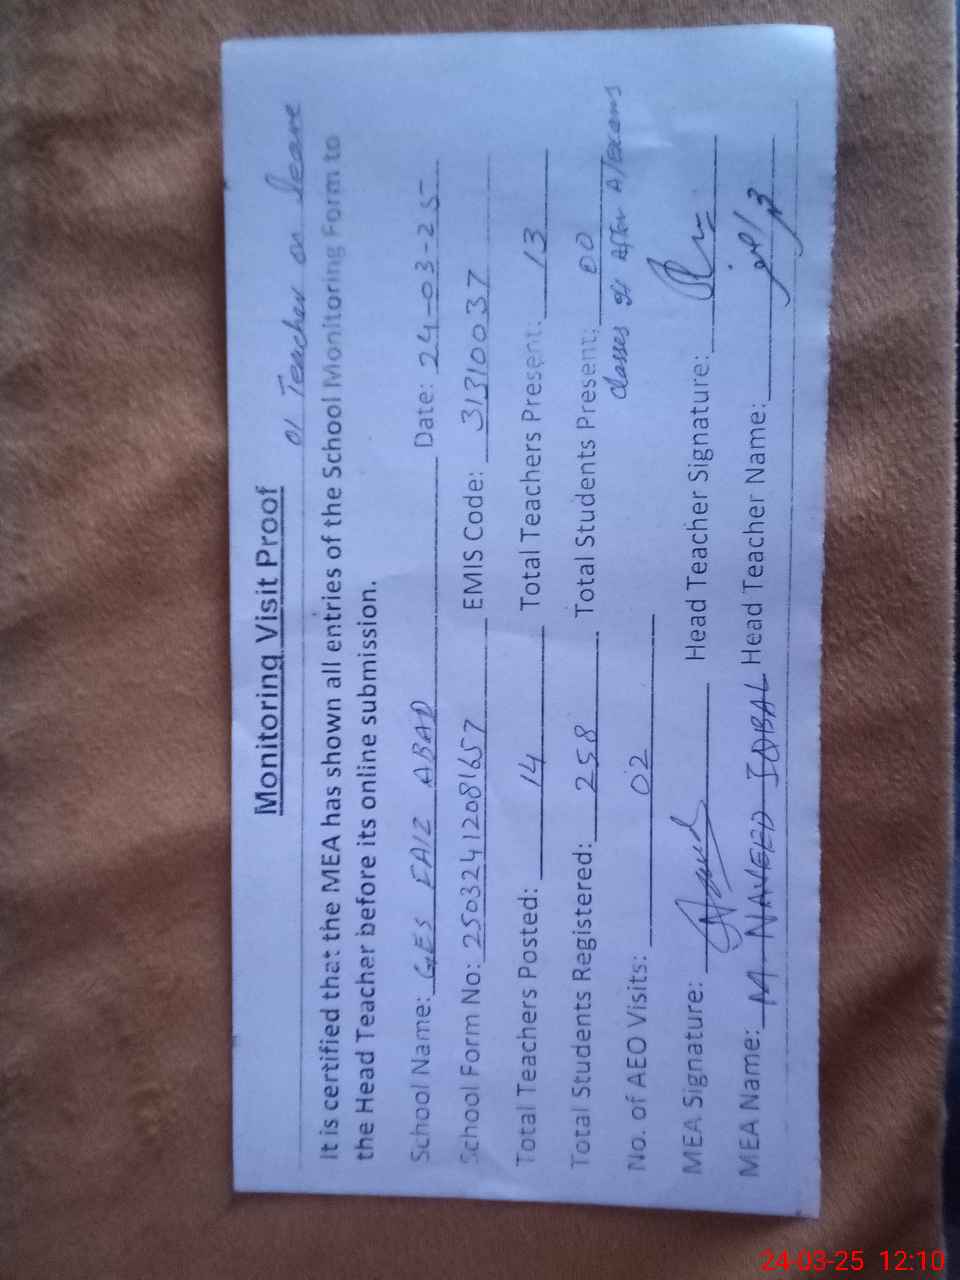 Monitoring Visit Proof
01 Teacher on leave
It is certified that the MEA has shown all entries of the School Monitoring Form to
the Head Teacher before its online submission.
School Name: GES FAIZ ABAD Date: 24-03-25
School Form No: 25032412081657 EMIS Code: 31310037
Total Teachers Posted: 14 Total Teachers Present: 13
Total Students Registered: 258 Total Students Present: 00
classes off After A/exams
No. of AEO Visits: 02
MEA Signature: Head Teacher Signature:
MEA Name: M NAVEED IQBAL Head Teacher Name:
24-03-25 12:10